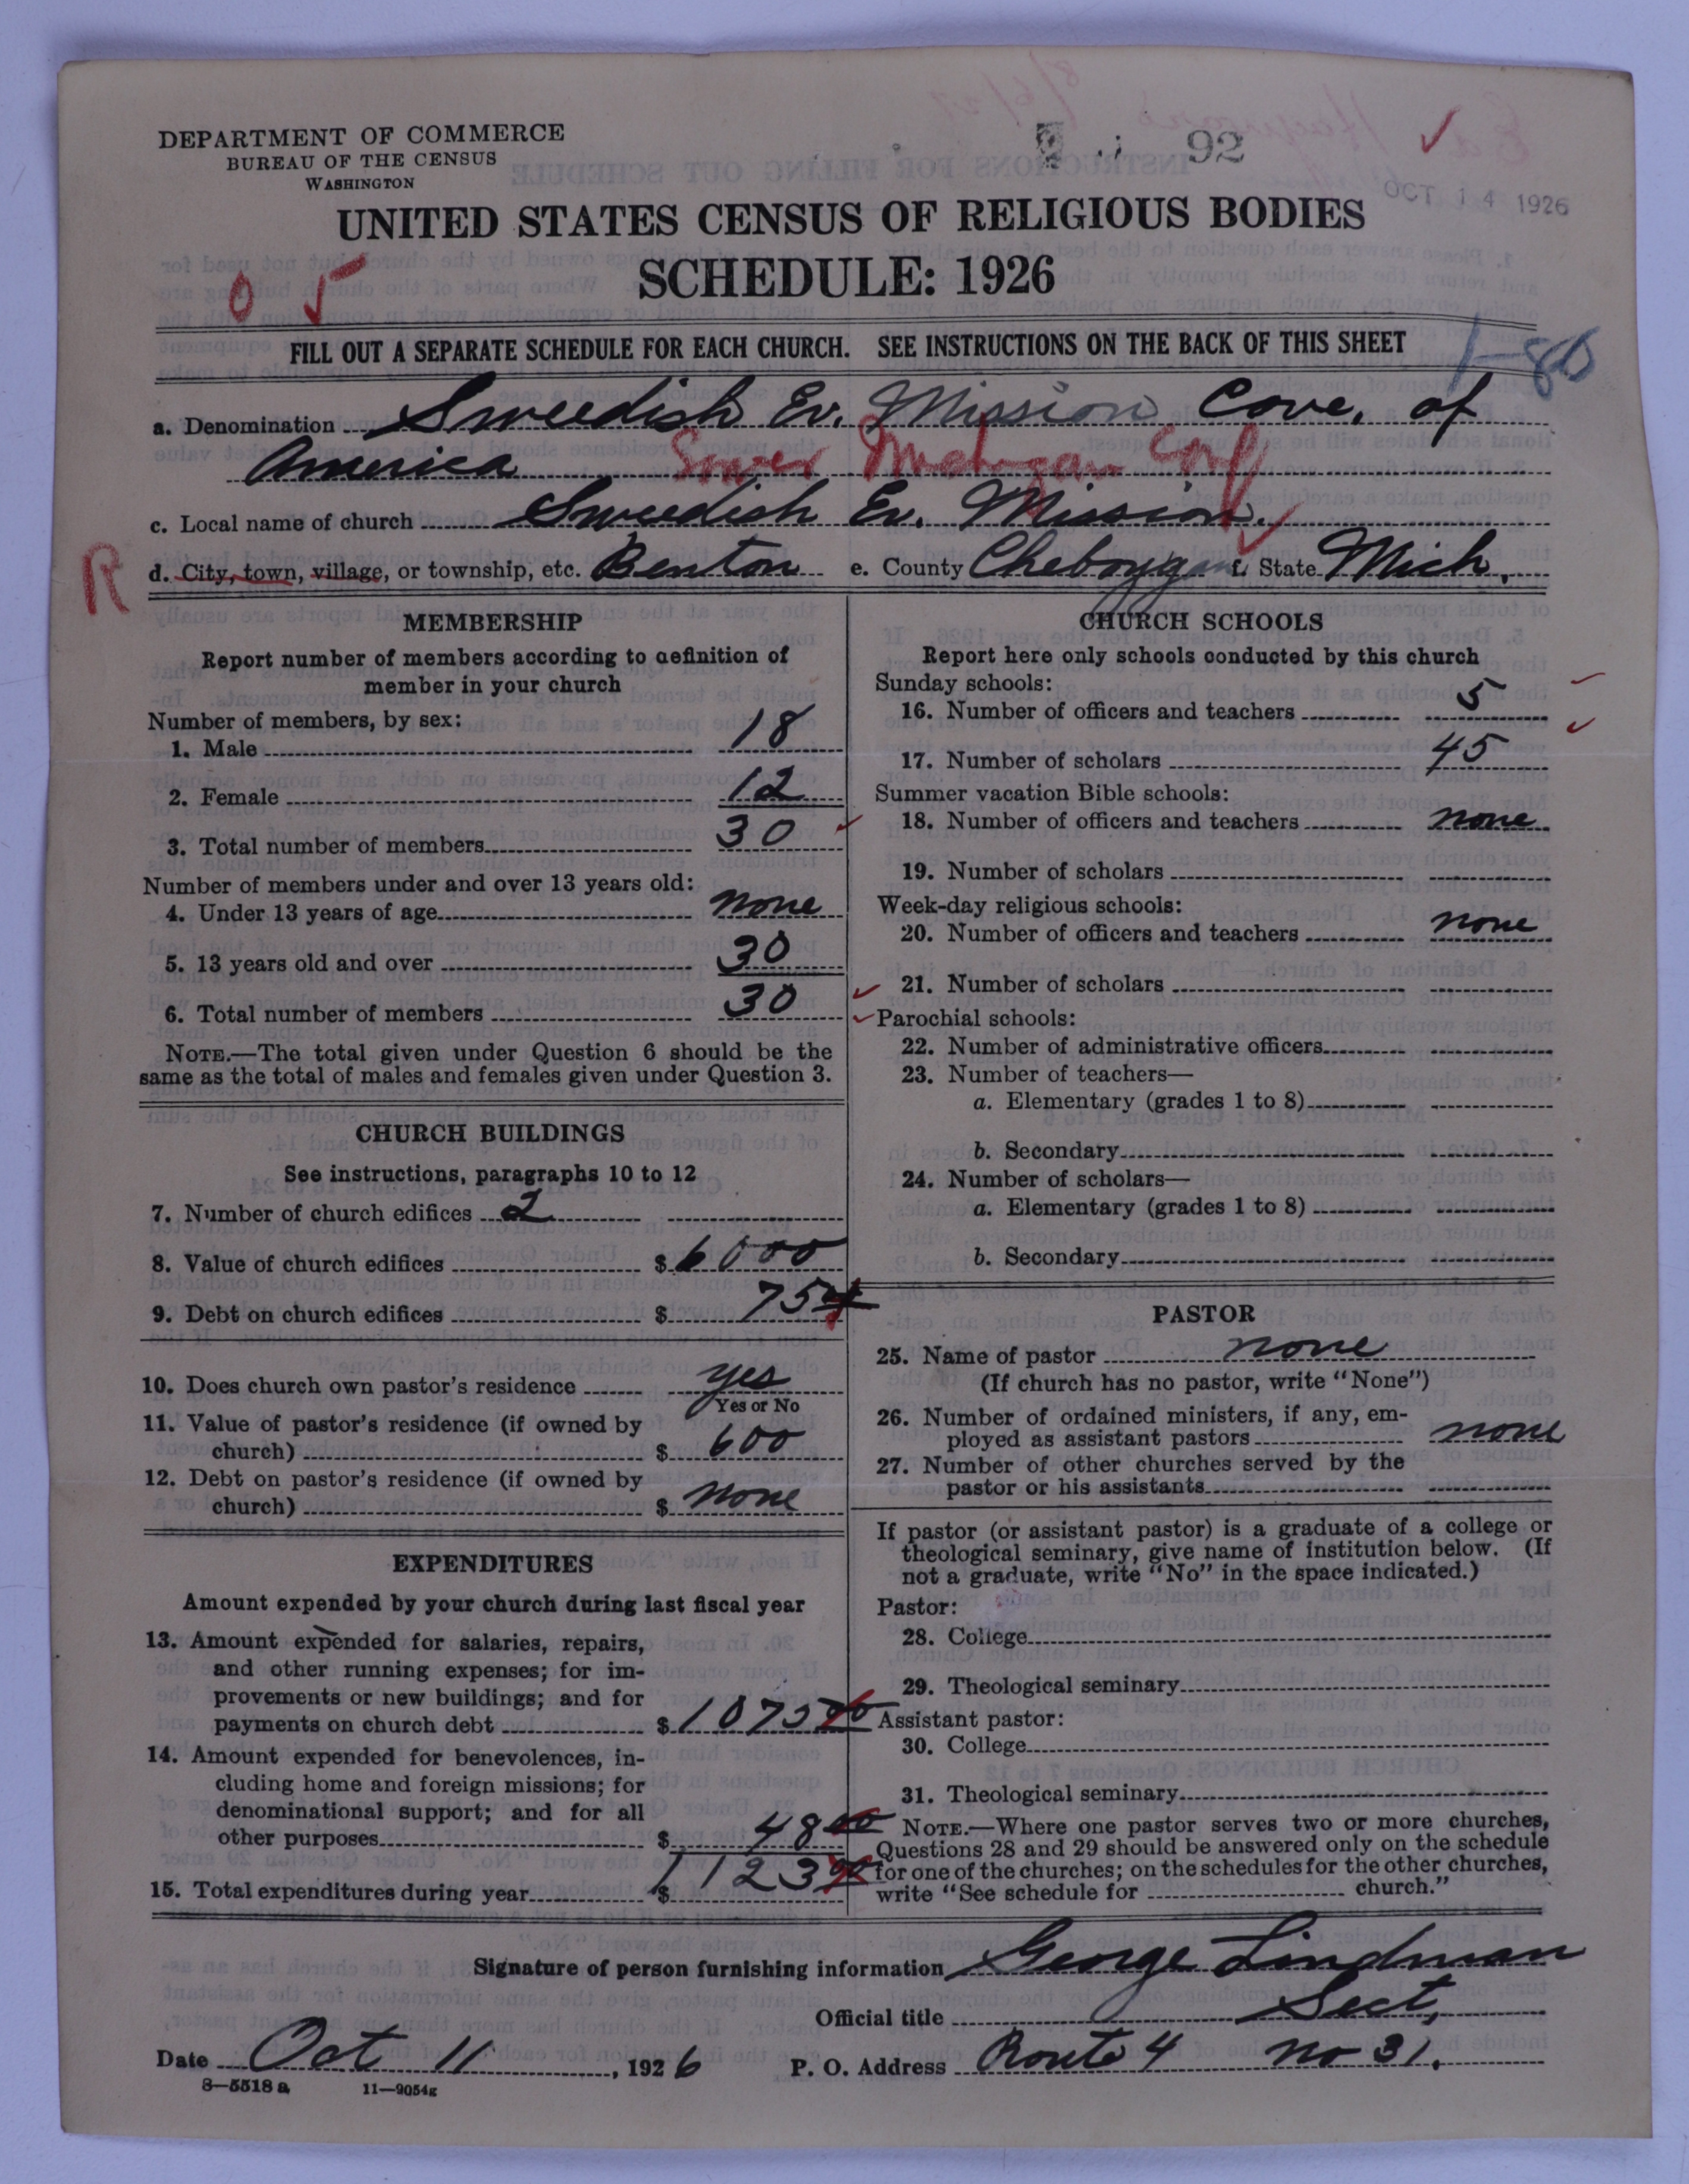 DEPARTMENT OF COMMERCE
BUREAU OF THE CENSUS
WASHINGTON
92
OCT 14 1926
UNITED STATES CENSUS OF RELIGIOUS BODIES
SCHEDULE: 1926
FILL OUT A SEPARATE SCHEDULE FOR EACH CHURCH. SEE INSTRUCTIONS ON THE BACK OF THIS SHEET
1-80
a. Denomination Swedish Ev. Mission Cove, of
America Michigan Conf
c. Local name of church Swedish Ev. Mission.
R
d. City, town, village, or township, etc. Benton e. County Cheboygan f. State Mich.
MEMBERSHIP
Report number of members according to definition of
member in your church
Number of members, by sex:
1. Male 18
2. Female 12
3. Total number of members 30
Number of members under and over 13 years old:
4. Under 13 years of age none
5. 13 years old and over 30
6. Total number of members 30
NOTE.—The total given under Question 6 should be the
same as the total of males and females given under Question 3.
CHURCH BUILDINGS
See instructions, paragraphs 10 to 12
7. Number of church edifices 2
8. Value of church edifices $ 6000
9. Debt on church edifices $ 75
10. Does church own pastor's residence yes
Yes or No
11. Value of pastor's residence (if owned by
church) $ 600
12. Debt on pastor's residence (if owned by
church) $ none
EXPENDITURES
Amount expended by your church during last fiscal year
13. Amount expended for salaries, repairs,
and other running expenses; for im-
provements or new buildings; and for
payments on church debt $ 1075
14. Amount expended for benevolences, in-
cluding home and foreign missions; for
denominational support; and for all
other purposes $ 48
15. Total expenditures during year $ 1123
CHURCH SCHOOLS
Report here only schools conducted by this church
Sunday schools:
16. Number of officers and teachers 5
17. Number of scholars 45
Summer vacation Bible schools:
18. Number of officers and teachers none
19. Number of scholars
Week-day religious schools:
20. Number of officers and teachers none
21. Number of scholars
Parochial schools:
22. Number of administrative officers
23. Number of teachers—
a. Elementary (grades 1 to 8)
b. Secondary
24. Number of scholars—
a. Elementary (grades 1 to 8)
b. Secondary
PASTOR
25. Name of pastor none
(If church has no pastor, write "None")
26. Number of ordained ministers, if any, em-
ployed as assistant pastors none
27. Number of other churches served by the
pastor or his assistants
If pastor (or assistant pastor) is a graduate of a college or
theological seminary, give name of institution below. (If
not a graduate, write "No" in the space indicated.)
Pastor:
28. College
29. Theological seminary
Assistant pastor:
30. College
31. Theological seminary
NOTE.—Where one pastor serves two or more churches,
Questions 28 and 29 should be answered only on the schedule
for one of the churches; on the schedules for the other churches,
write "See schedule for church."
Signature of person furnishing information George Lindman
Official title Sect,
Date Oct 11, 1926 P. O. Address Route 4 no 31.
8—5518 a 11—9054g